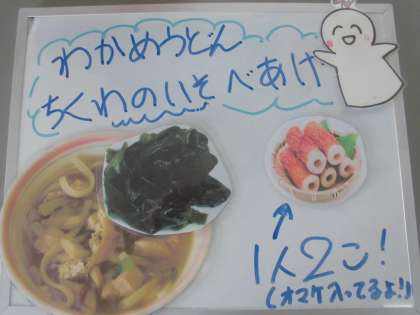 わかめうどん
ちくわのいそべあげ
1人2こ!
(オマケ入ってるよ!)